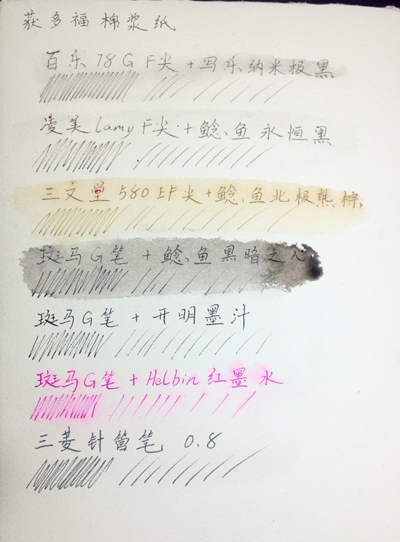 获多福 棉浆纸
百乐 78G F尖 + 写乐纳米极黑
凌美 lamy F尖 + 鲶鱼永恒黑
三文堂 580 EF尖 + 鲶鱼北极熊棕
斑马G笔 + 鲶鱼黑暗之心
斑马G笔 + 开明墨汁
斑马G笔 + Holbin 红墨水
三菱针管笔 0.8